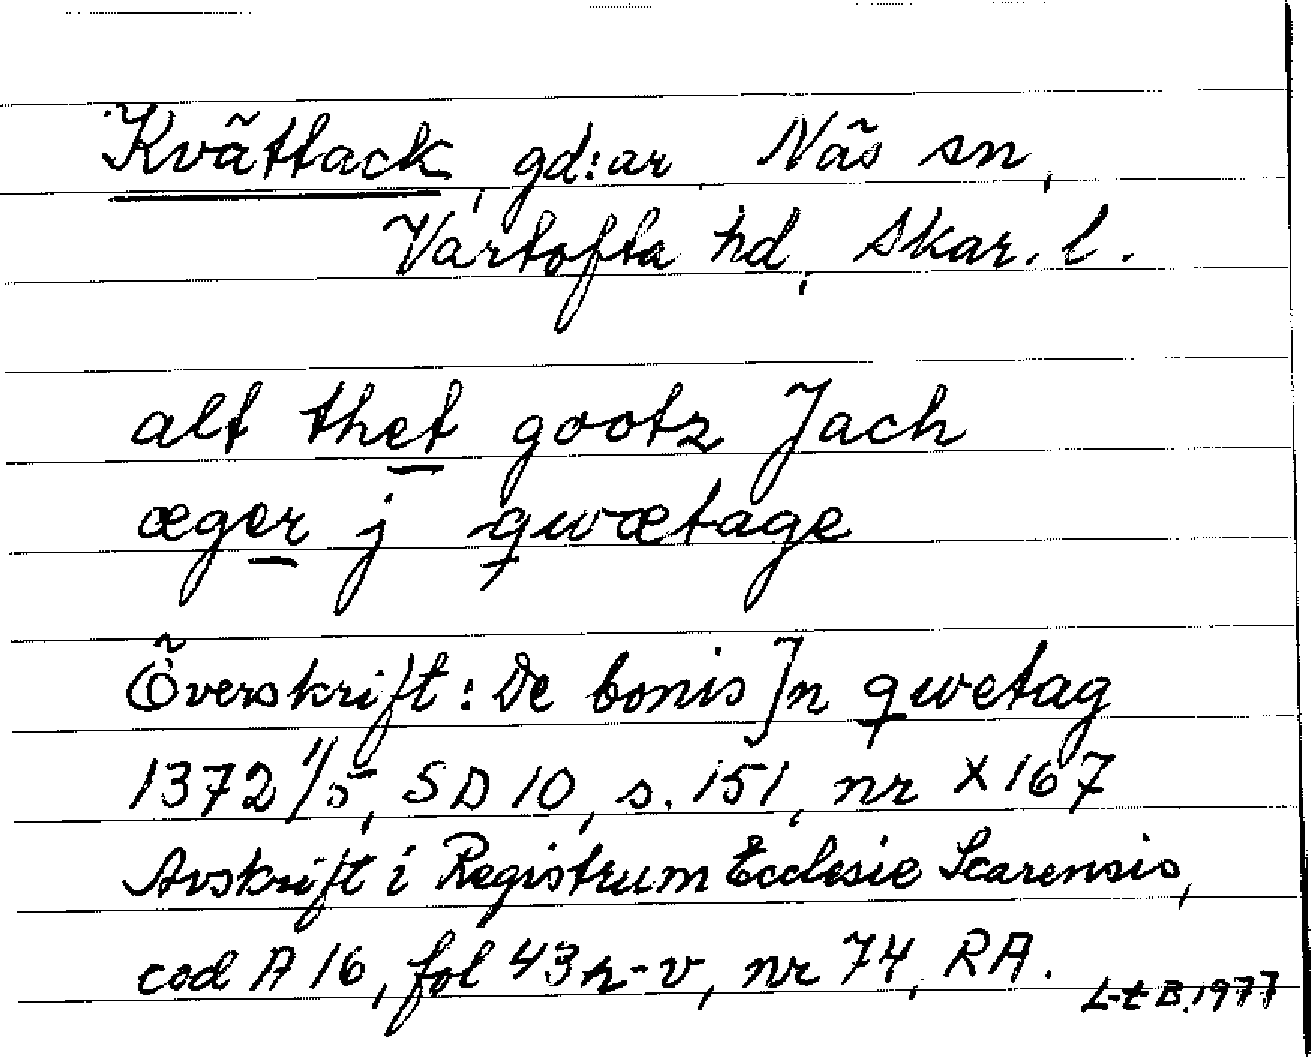 Kvättack, gd:ar, Näs sn,
Vartofta hd, Skar. l.
alt thet gootz Jach
æger j qwætage
Överskrift: De bonis Jn qwetag
1372 1/5, SD 10, s. 151, nr X 167
Avskrift i Registrum Ecclesie Scarensis,
cod A 16, fol 43 r-v, nr 74, RA.
L-t B. 1977